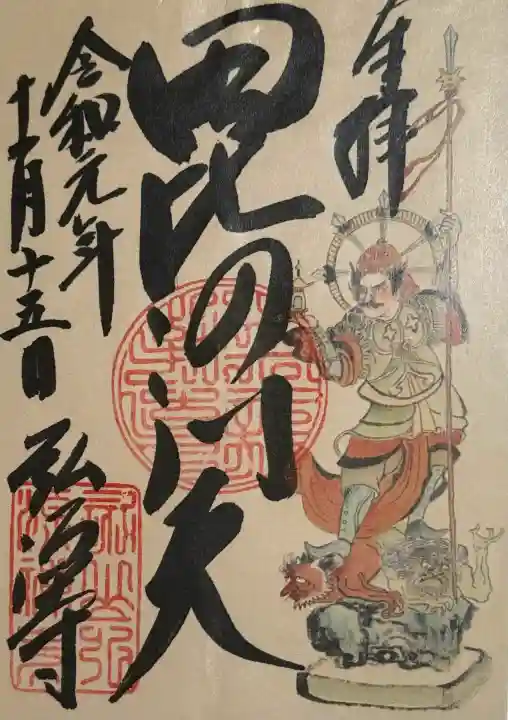 奉拝
毘沙门天
令和元年
十一月十五日
弘源寺